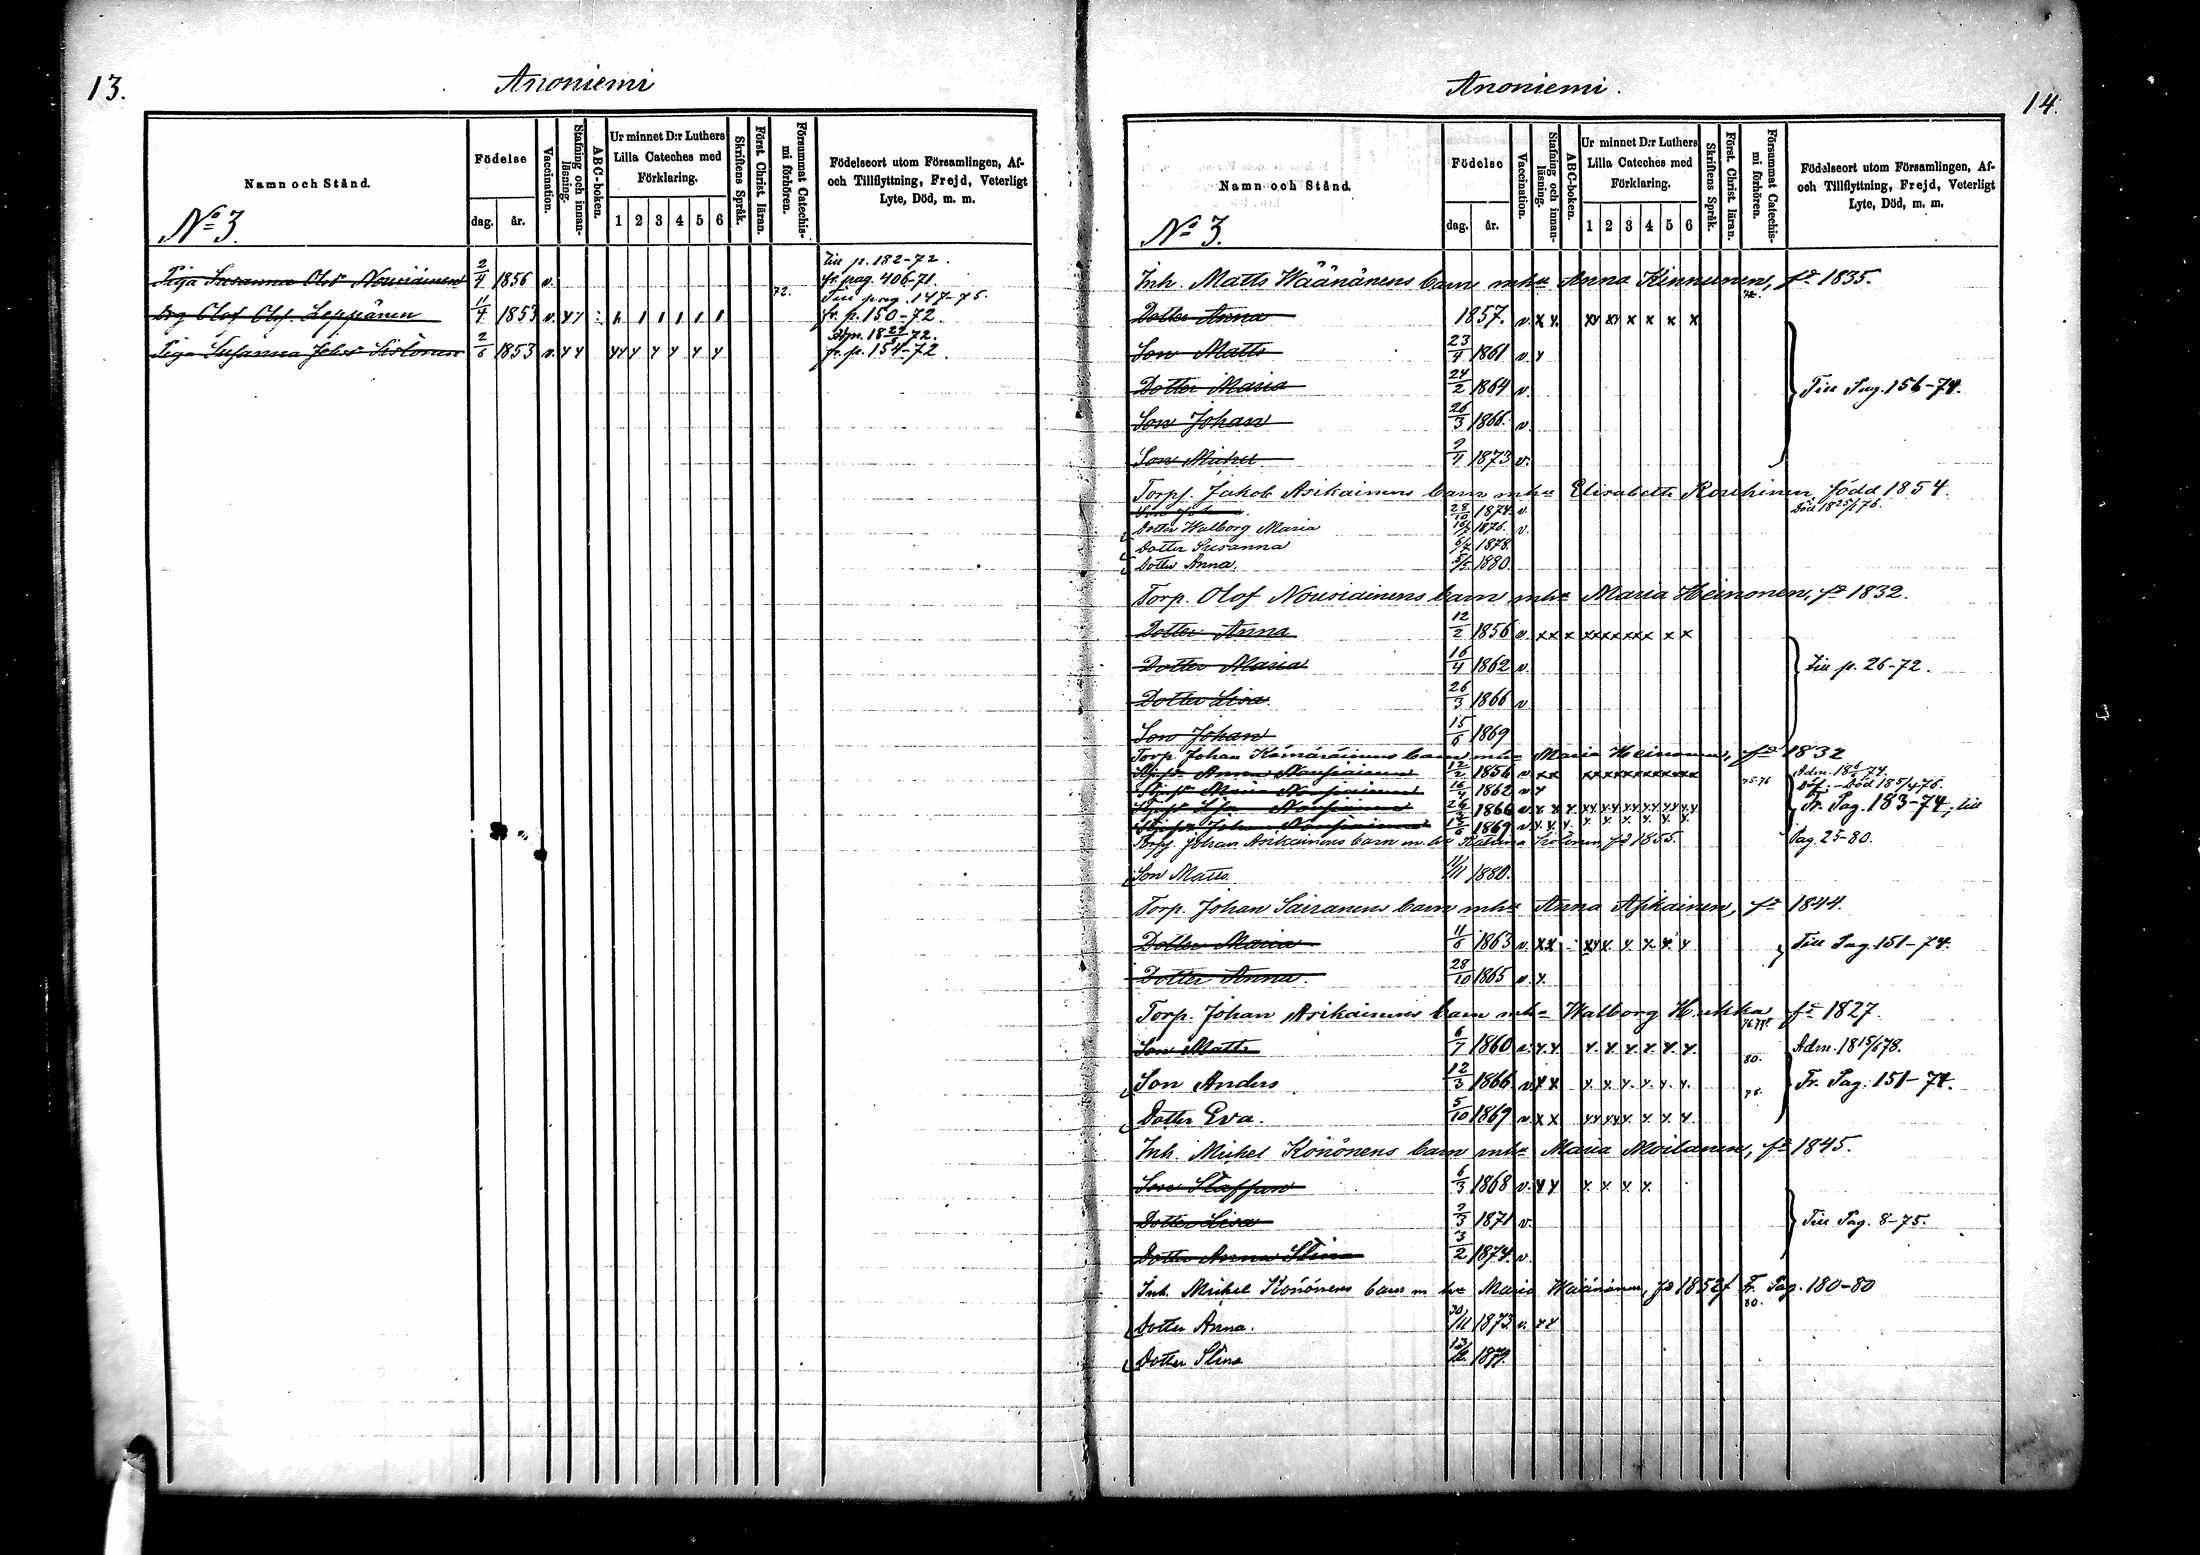 13.
Anoniemi
Namn och Stånd.
Födelse
dag.
år.
Vaccination.
Stafning och innan-
läsning.
ABC-boken.
Ur minnet D:r Luthers
Lilla Cateches med
Förklaring.
1 2 3 4 5 6
Skriftens Språk.
Först. Christ. läran.
Försummat Catechis-
mi förhören.
Födelseort utom Församlingen, Af-
och Tillflyttning, Frejd, Veterligt
Lyte, Död, m. m.
No 3.
Till p. 182-72.
Piga Susanna Olsdr Nousiainen 2/4 1856 v. fr. pag. 406-71.
72. Till pag. 147-75.
Drg Olof Olofs. Leppänen 11/4 1853 v. fr. p. 150-72.
Piga Susanna Johsdr Sistonen 2/6 1853 v. fr. p. 154-72.
14.
Anoniemi.
Namn och Stånd.
Födelse
dag.
år.
Vaccination.
Stafning och innan-
läsning.
ABC-boken.
Ur minnet D:r Luthers
Lilla Cateches med
Förklaring.
1 2 3 4 5 6
Skriftens Språk.
Först. Christ. läran.
Försummat Catechis-
mi förhören.
Födelseort utom Församlingen, Af-
och Tillflyttning, Frejd, Veterligt
Lyte, Död, m. m.
No 3.
Inh. Matts Wäänänens barn mhu Anna Kinnunen, fd 1835.
Dotter Anna 1857. v. x x. xx xx x x x x
Son Matts 23/4 1861 v.
Dotter Maria 24/2 1864 v. Till Pag. 156-74.
Son Johan 26/3 1866. v.
Son Michel 2/4 1873 v.
Torp. Jakob Asikainens barn mhu Elisabeth Rouhinen, född 1854.
Son Johan. 28/10 1874. v.
Dotter Walborg Maria 1876. v.
Dotter Susanna 1878.
Dotter Anna. 1880.
Torp. Olof Nousiainens barn mhu Maria Heinonen, fd 1832.
Dotter Anna 12/2 1856 v. x x x
Dotter Maria 16/4 1862 v. Till p. 26-72.
Dotter Lisa 26/3 1866 v
Son Johan 15/6 1869
Torp. Johan Kämäräinens barn mhu Maria Heinonen, fd 1832
Anna Nousiainen 12/2 1856 v x x 75-76
Maria Nousiainen 16/4 1862 v
Lisa Nousiainen 26/3 1866 v. Fr. Pag. 183-74; till
Johan Nousiainen 15/6 1869 v
Torp. Johan Asikainens barn m. hu Katarina fd 1855. Pag. 25-80.
Son Matts. 11/11 1880.
Torp. Johan Sairanens barn mhu Anna Asikainen, fd 1844.
Dotter Maria 11/6 1863 v. x x Till Pag. 151-74.
Dotter Anna. 28/10 1865 v.
Torp. Johan Asikainens barn mhu Walborg Hukka fd 1827.
Son Matts 6/7 1860 Adm. 18 15/6 78.
80.
Son Anders 12/3 1866 v. Fr. Pag. 151-74.
Dotter Eva. 5/10 1869 v. x x
Inh. Michel Könönens barn mhu Maria Moilanen, fd 1845.
Son Staffan 6/3 1868 v.
Dotter Lisa 2/3 1871 v. Till Pag. 8-75.
Dotter Anna Stina 3/2 1874. v.
Inh. Michel Könönens barn m hu Maria Wäänänen, fd 1852 Fr. Pag. 180-80
80.
Dotter Anna. 30/11 1873 v.
Dotter Stina 1879.